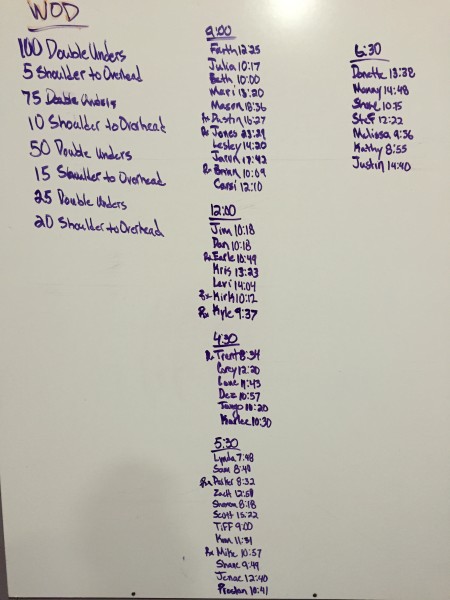 WOD
100 Double Unders
5 Shoulder to Overhead
75 Double Unders
10 Shoulder to Overhead
50 Double Unders
15 Shoulder to Overhead
25 Double Unders
20 Shoulder to Overhead
9:00
Faith 12:25
Julia 10:17
Beth 10:00
Mari 13:20
Mason 18:36
Rx Dustin 16:27
Rx Jones 23:29
Lesley 14:20
Jason 17:42
Rx Brian 10:09
Carsi 12:10
12:00
Jim 10:18
Dan 10:18
Rx Earle 10:49
Kris 13:23
Levi 14:04
Rx Kirk 10:12
Rx Kyle 9:37
4:30
Rx Trent 8:34
Corey 12:20
Lane 11:43
Dez 10:57
Tango 10:20
Karlee 10:30
5:30
Lynda 7:48
Sam 8:40
Rx Parker 8:32
Zach 12:58
Sharon 8:18
Scott 15:22
Tiff 9:00
Kim 11:31
Rx Mike 10:57
Shane 9:49
Jenae 12:40
Preston 10:41
6:30
Donette 13:38
Manny 14:48
Shane 10:15
Stef 12:22
Melissa 9:36
Kathy 8:55
Justin 14:40